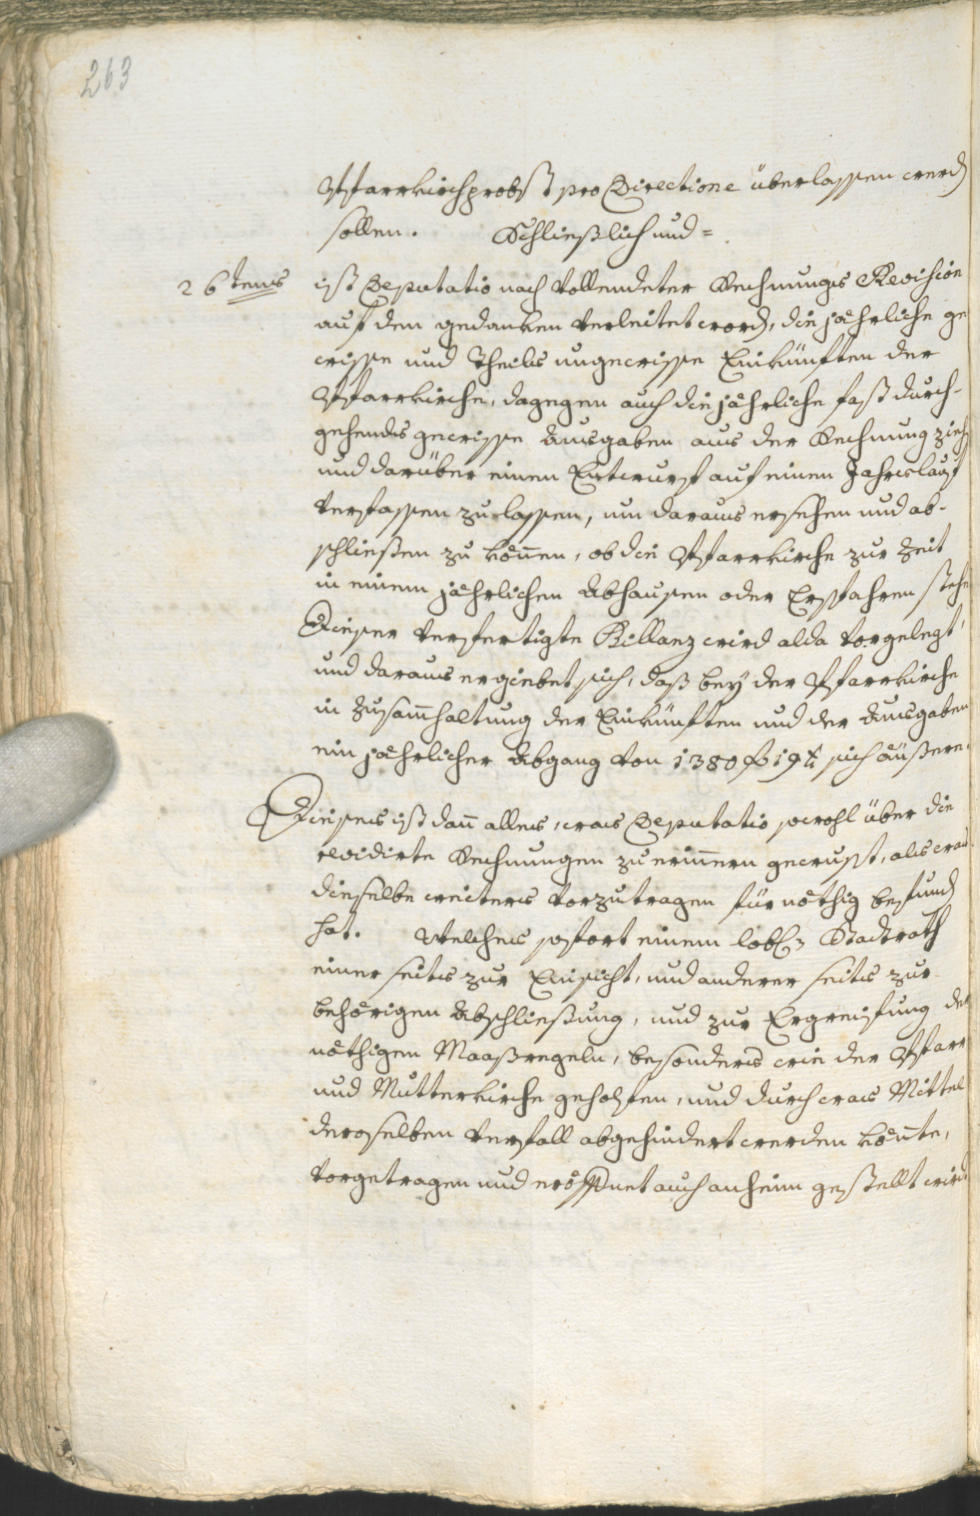 263
Pfarrkirchprobst pro Directione überlassen werd
sollen. Schließlich und =
26tens ist Deputatio nach vollendeter Rechnungs Revision
auf den gedanken verleitet word, die jährliche ge
wisse und theils ungewisse Einkünften der
Pfarrkirche, dagegen auch die jährliche fast durch-
gehends gewisse Ausgaben aus der Rechnung zieh
und darüber einen Entwurf auf einen Jahrslauf
verfassen zu lassen, um daraus ersehen und ab-
schließen zu können, ob die Pfarrkirche zur Zeit
in einem jährlichen Abhausen oder Ersparen stehe
Dieser verfertigte Billanz wird alda vorgelegt,
und daraus ergiebet sich, daß bey der Pfarrkirche
in Zusamhaltung der Einkünften und der Ausgaben
ein jährlicher Abgang von 1380 f 19 x sich äußere.
Dieses ist dan alles, was Deputatio sowohl über die
revidirte Rechnungen zu erinnern gewust, als was
dieselbe weiters vorzutragen für nöthig befund
hat. Welches sofort einem lobl. Stadtrath
einer seits zur Einsicht, und anderer seits zur
behörigen Abschließung, und zur Ergreifung der
nöthigen Maaßregeln, besonders wie der Pfarr
und Mutterkirche geholfen, und durch was Mittel
deroselben Verfall abgehindert werden könte,
vorgetragen und eröffnet auch anheim gestellt wird